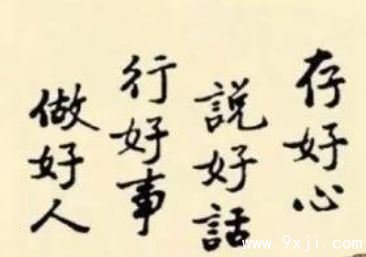 存好心
說好話
行好事
做好人
www.9xji.com